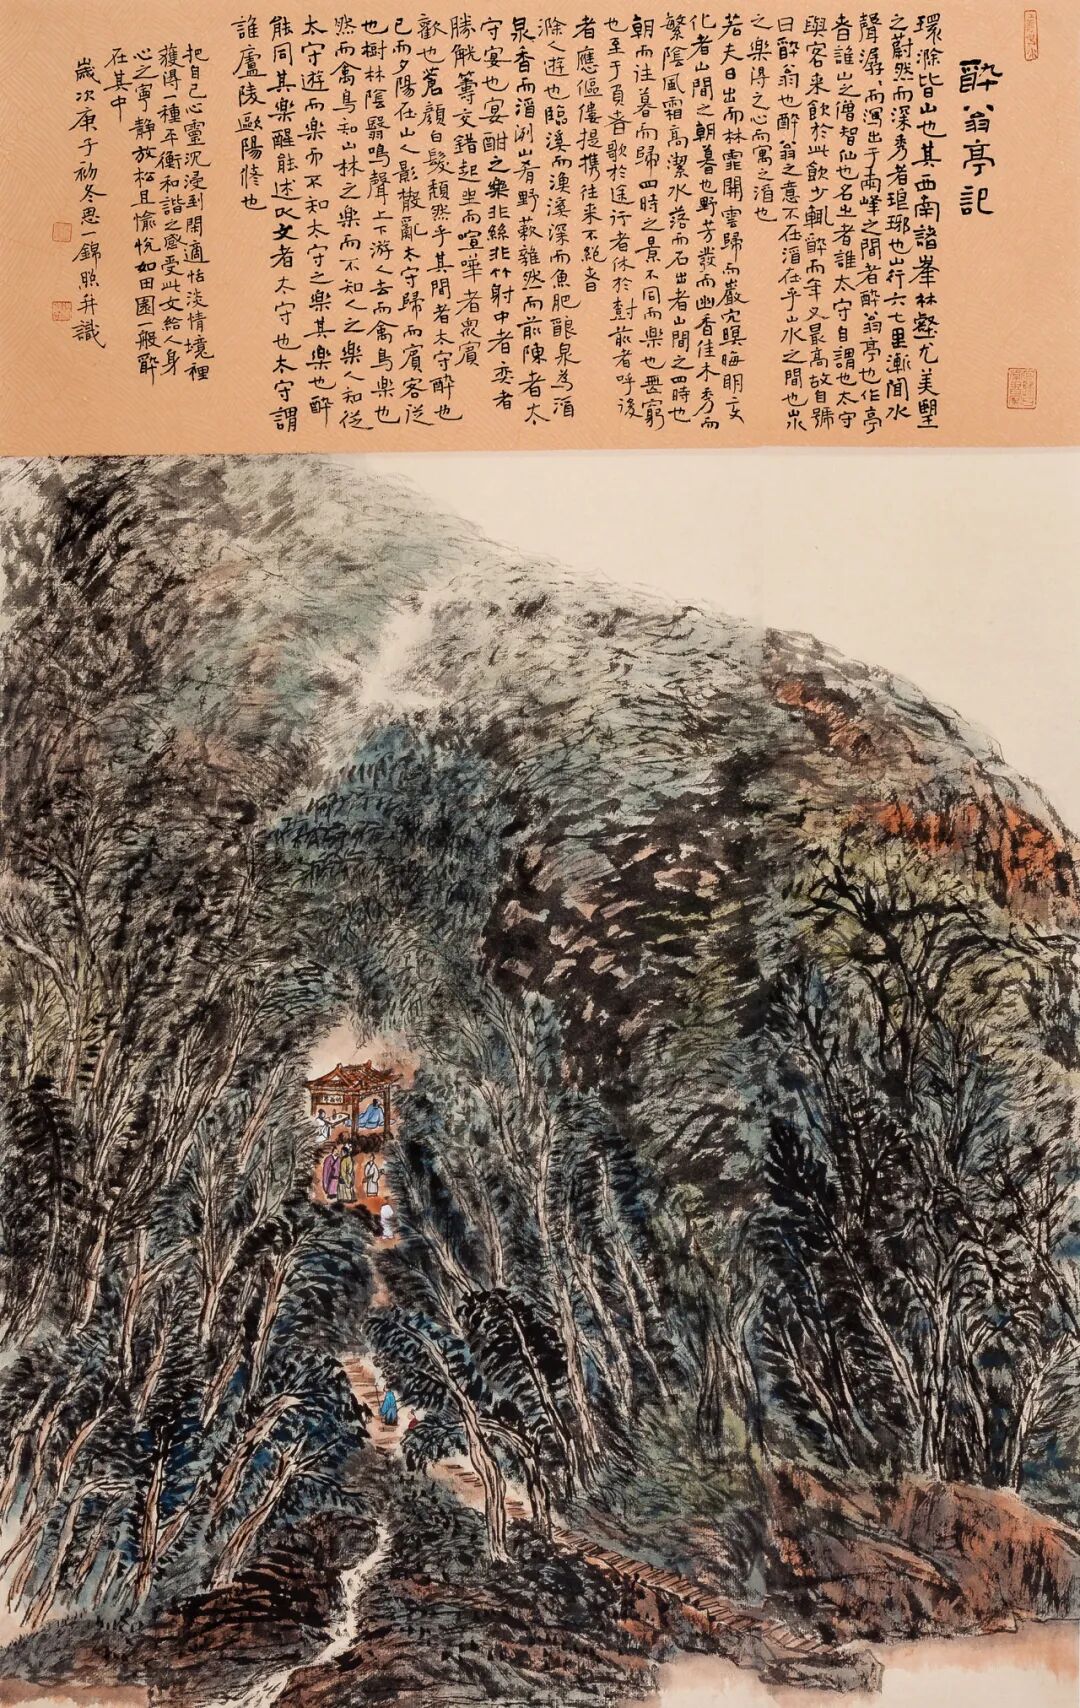 醉翁亭記
環滁皆山也其西南諸峯林壑尤美望
之蔚然而深秀者琅琊也山行六七里漸聞水
聲潺而瀉出于兩峰之間者醉翁亭也作亭
者誰山之僧智仙也名之者誰太守自謂也太守
與客來飲於此飲少輒醉而年又最高故自號
曰醉翁也醉翁之意不在酒在乎山水之間也山水
之樂得之心而寓之酒也
若夫日出而林霏開雲歸而巖穴暝晦明變
化者山間之朝暮也野芳發而幽香佳木秀而
繁陰風霜高潔水落而石出者山間之四時也
朝而往暮而歸四時之景不同而樂也無窮
也至于負者歌於途行者休於樹前者呼後
者應傴僂提攜往來不絕者
滁人遊也臨溪而漁溪深而魚肥釀泉為酒
泉香而酒洌山肴野蔌雜然而前陳者太
守宴也宴酣之樂非絲非竹射中者奕者
勝觥籌交錯起坐而喧嘩者眾賓
歡也蒼顏白髮頹然乎其間者太守醉也
已而夕陽在山人影散亂太守歸而賓客從
也樹林陰翳鳴聲上下游人去而禽鳥樂也
然而禽鳥知山林之樂而不知人之樂人知從
太守遊而樂而不知太守之樂其樂也醉
能同其樂醒能述以文者太守也太守謂
誰廬陵歐陽修也
把自己心靈沉浸到閑適恬淡情境裡
獲得一種平衡和諧之感受此文給人身
心之寧靜放松且愉悅如田園一般醉
在其中
歲次庚子初冬思一錦煦并識